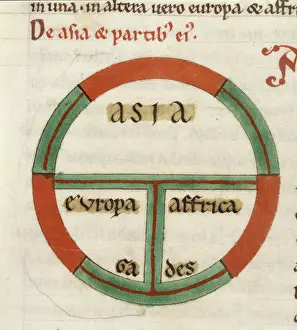 in una · in altera uero europa & affri
De asia & partib' ei'.
ASIA
eUropa affrica
GA des